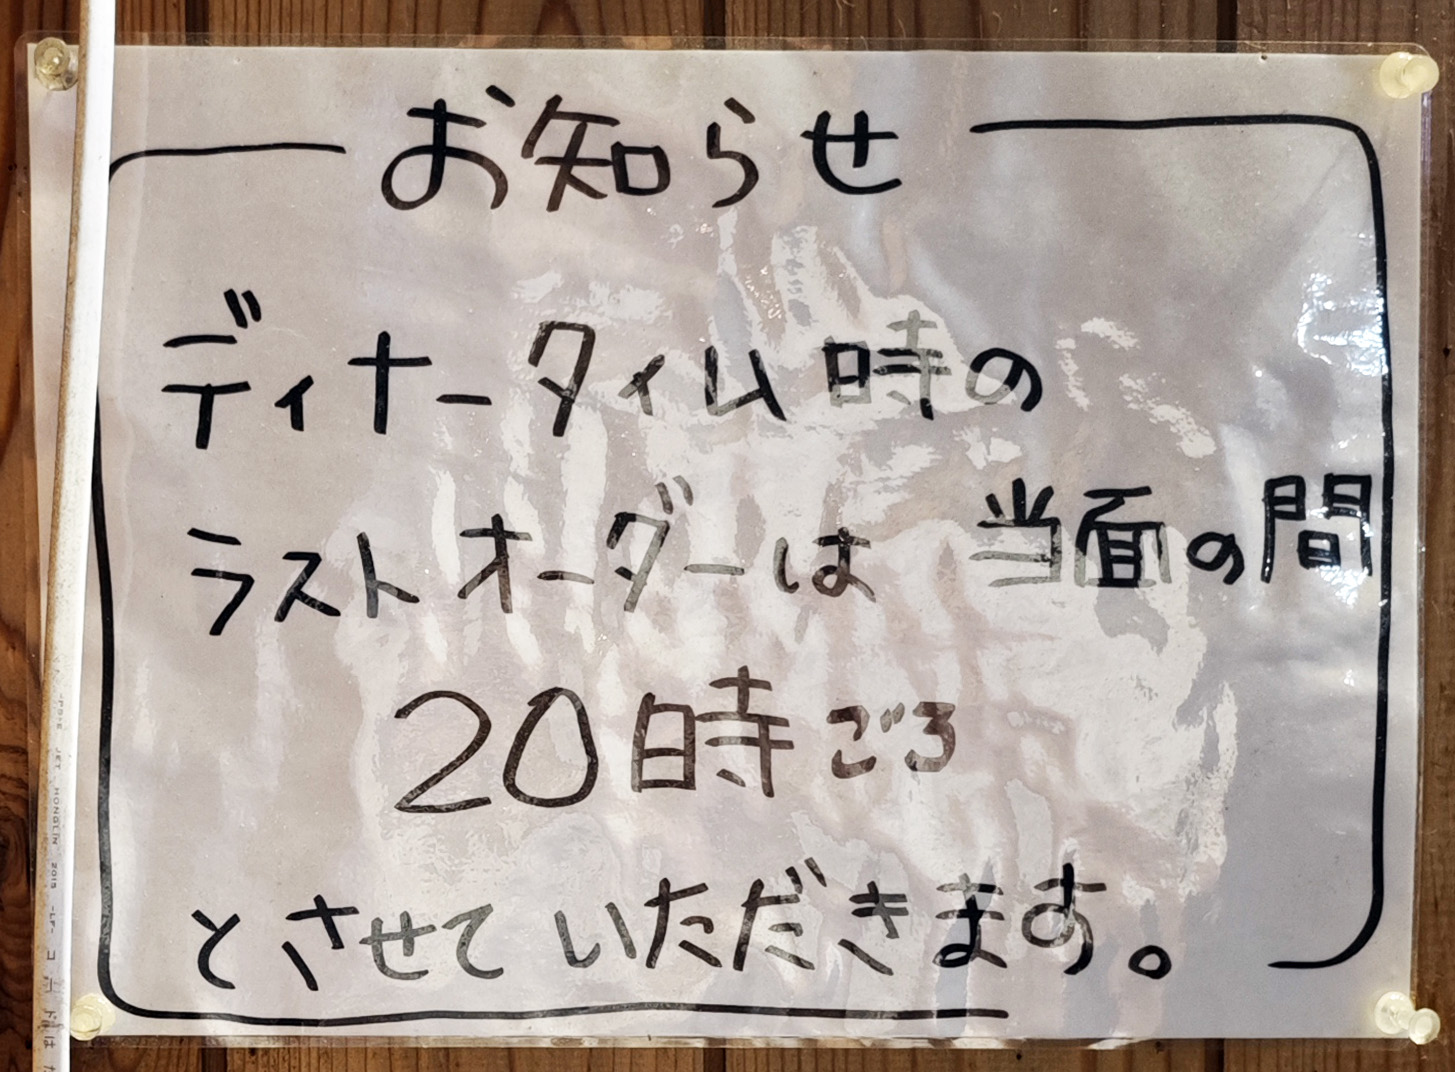 お知らせ
ディナータイム時の
ラストオーダーは 当面の間
20時ごろ
とさせていただきます。